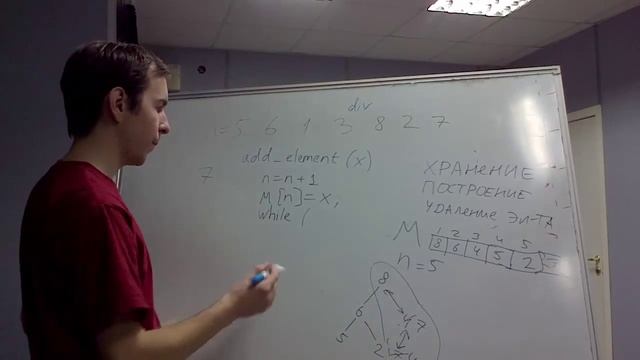 div
n=5 6 1 3 8 2 7
7
add_element (x)
n=n+1
M[n]=x;
while (
ХРАНЕНИЕ
ПОСТРОЕНИЕ
УДАЛЕНИЕ ЭЛ-ТА
1 2 3 4 5
M 8 6 4 5 2
n=5
8
6 4 7
5 2